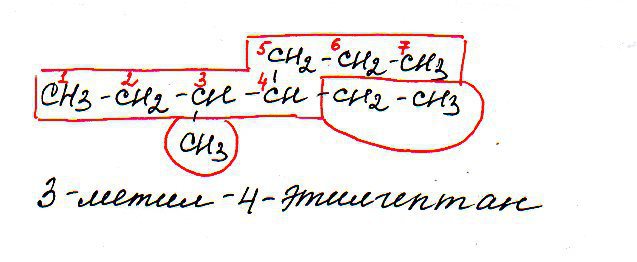 5 6 7
CH2 - CH2 - CH3
1 2 3 4
CH3 - CH2 - CH - CH - CH2 - CH3
CH3
3-метил-4-этилгептан